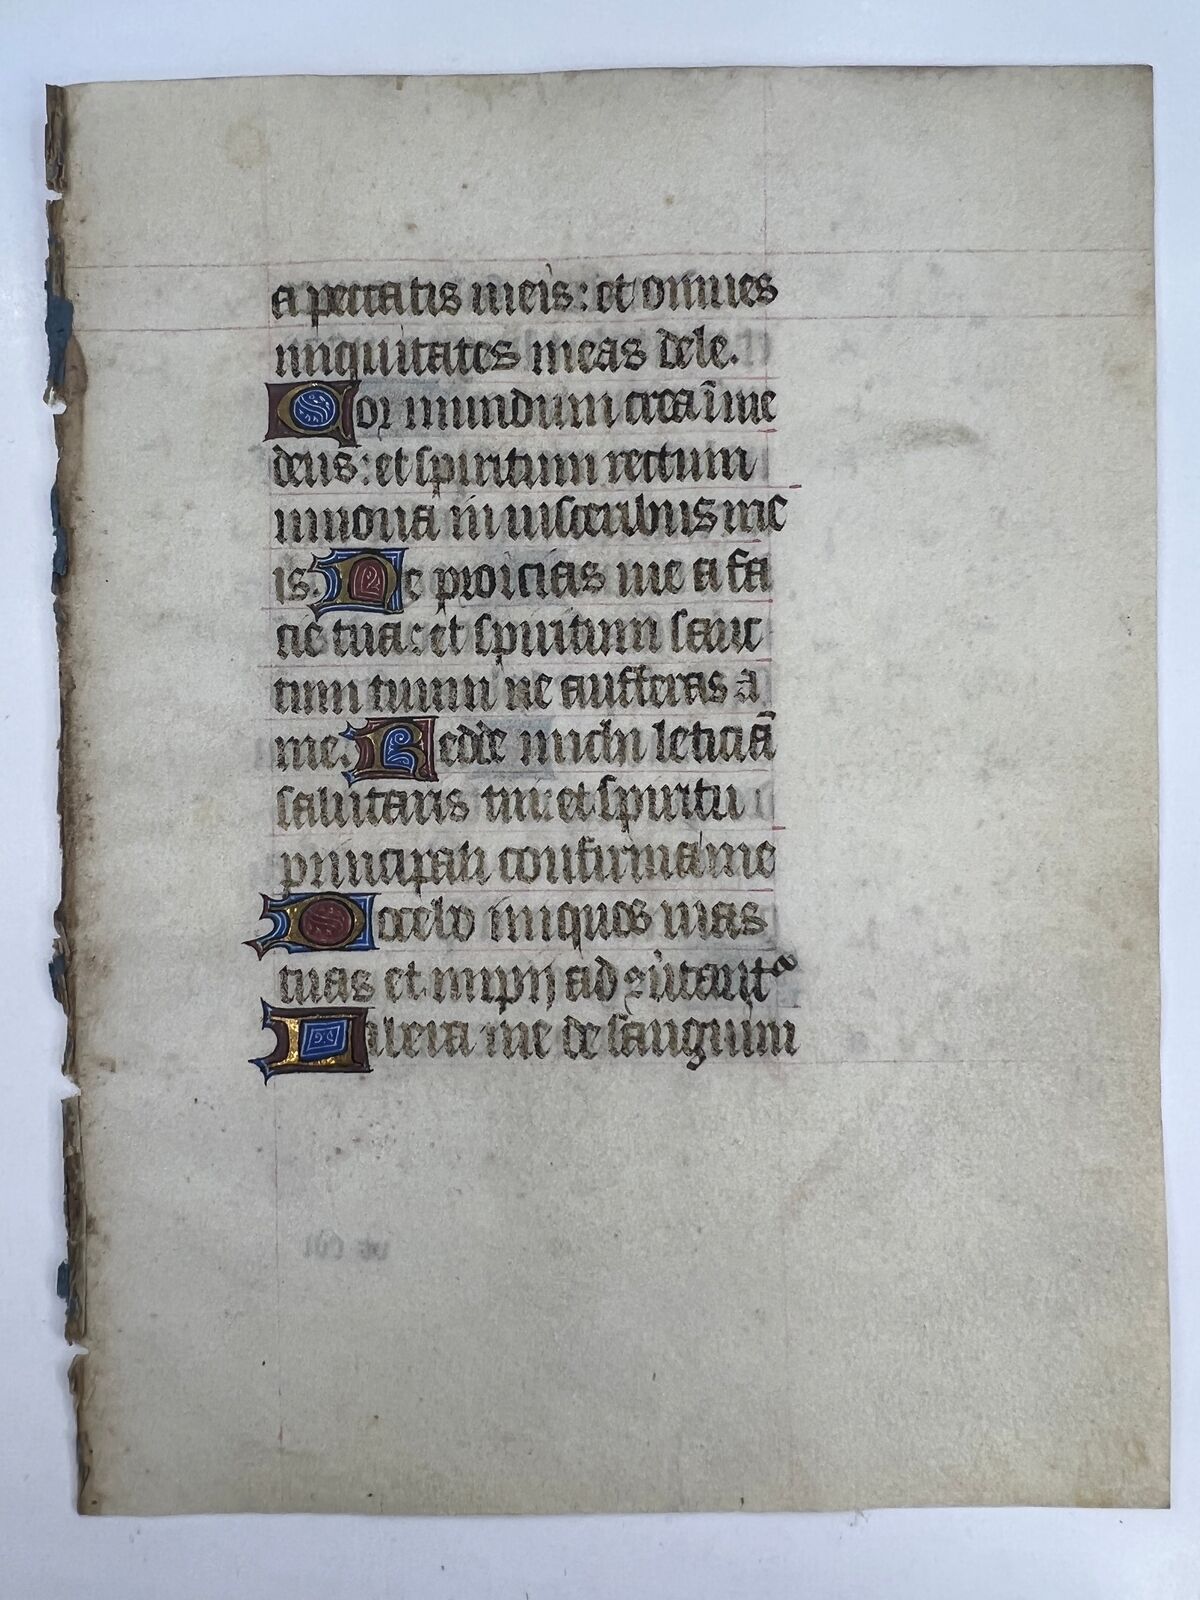 a peccatis meis: et omnes
iniquitates meas dele.
Cor mundum crea ī me
deus: et spiritum rectum
innova in visceribus me
is. Ne proicias me a fa
cie tua: et spiritum sanc
tum tuum ne aufferas a
me. Redde michi leticiā
salutaris tui: et spiritu
principali confirma me
Docebo iniquos vias
tuas et impij ad
Libera me de sanguini